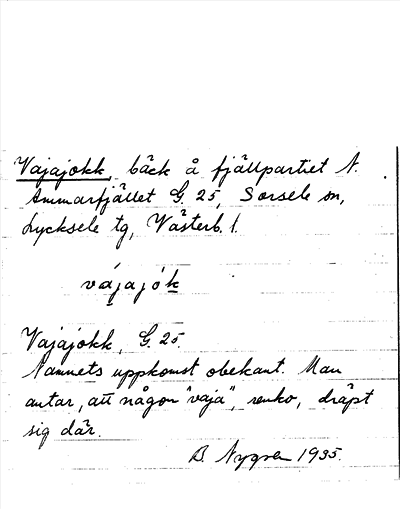 Vajajokk, bäck å fjällpartiet N.
Ammarfjället G. 25, Sorsele sn,
Lycksele tg, Västerb. l.
vájajók
Vajajokk, G. 25.
Namnets uppkomst obekant. Man
antar, att någon "vaja", renko, dräpt
sig där.
B. Nygren 1935.